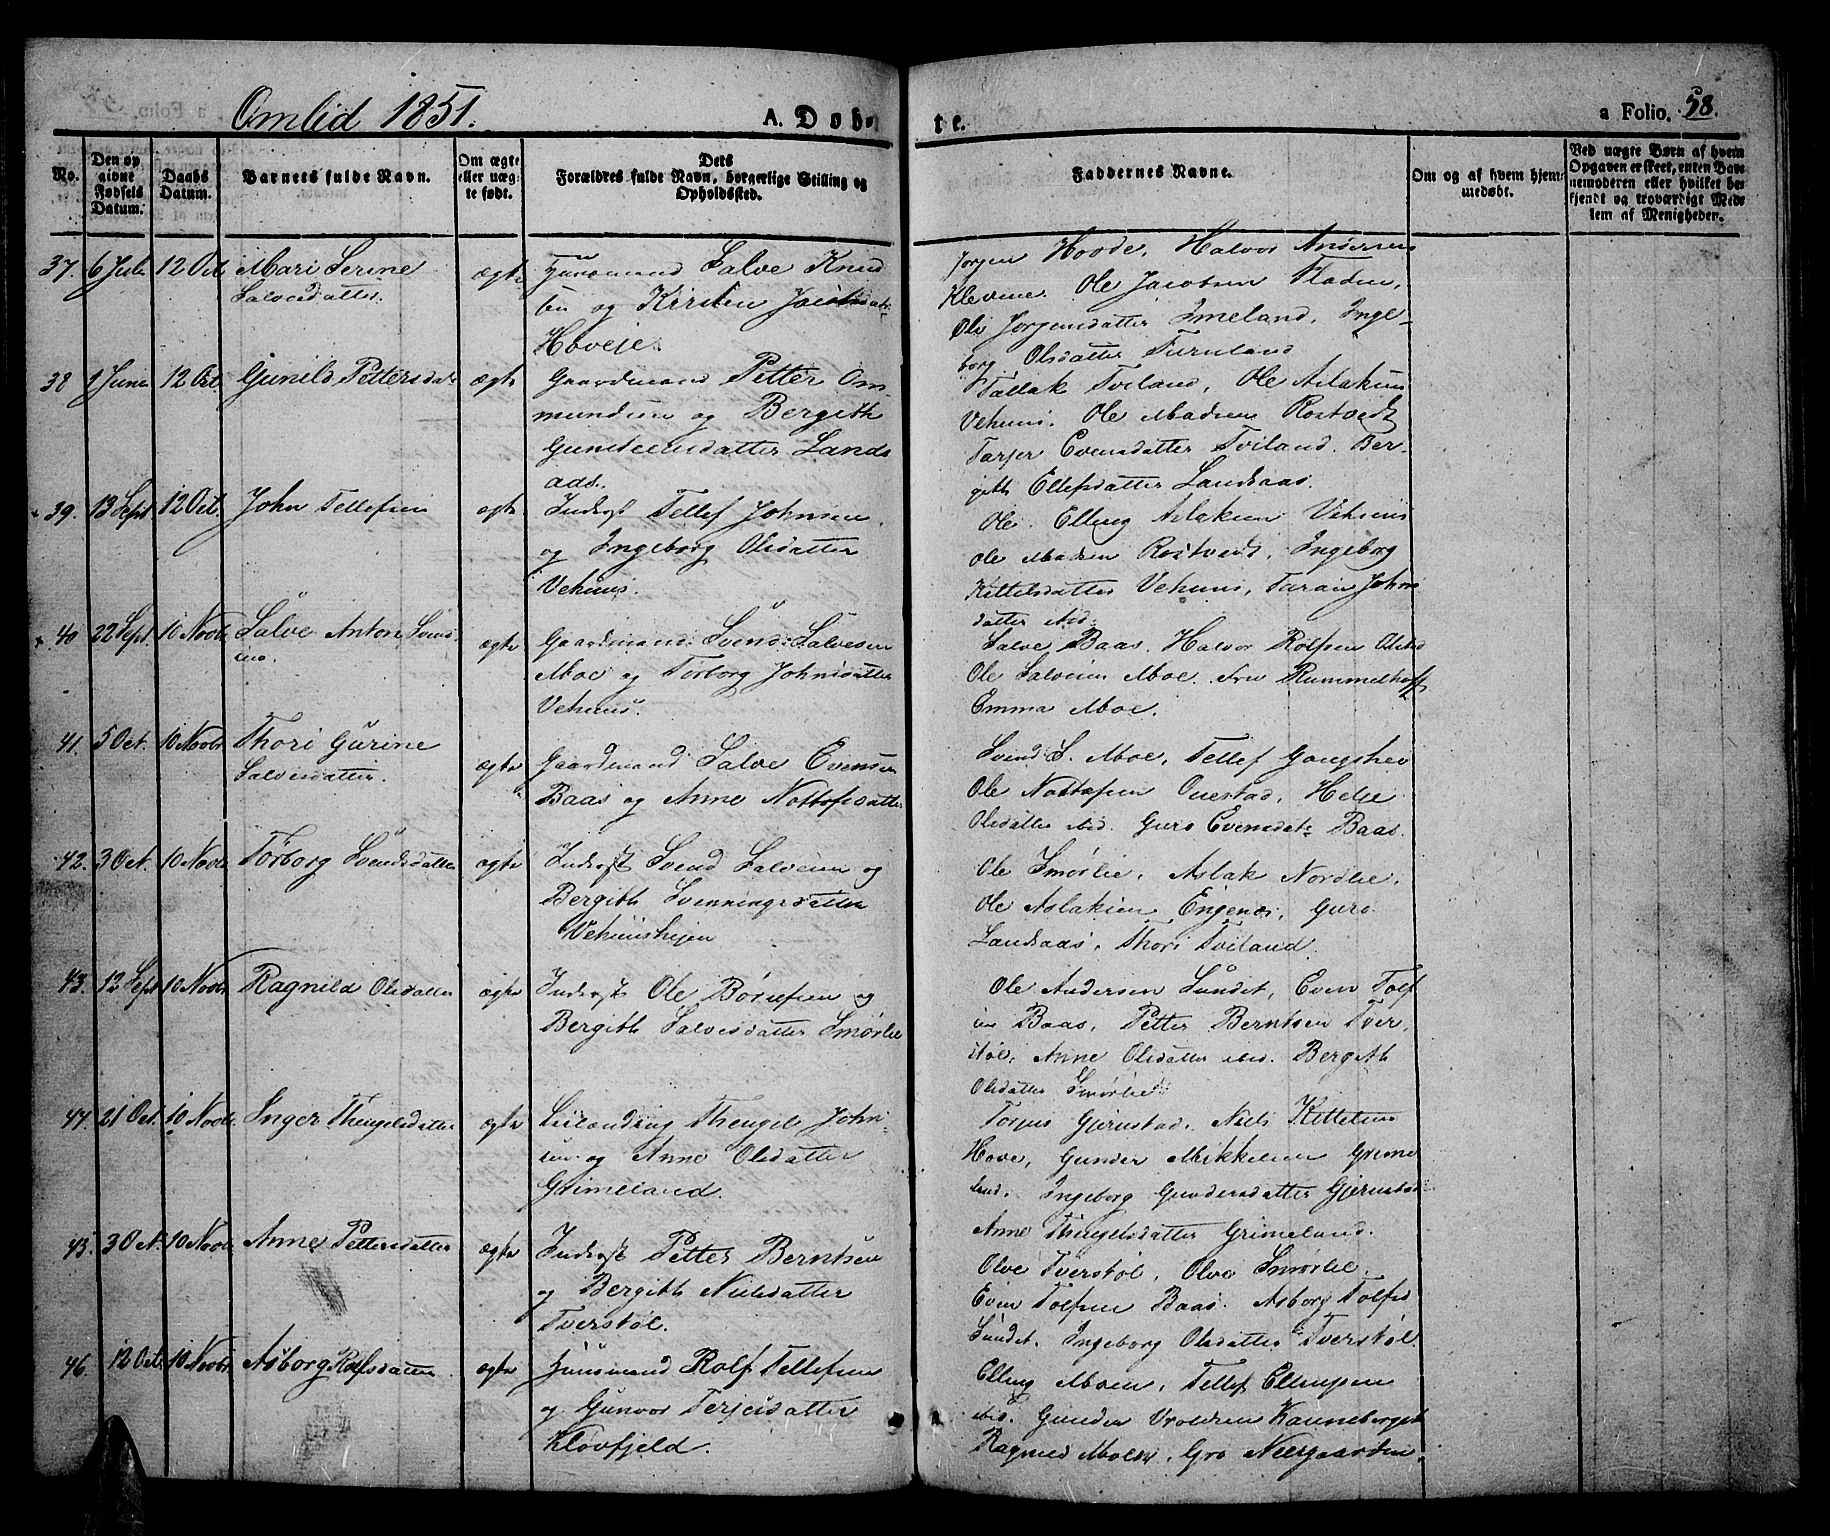 Omlid 1851.
A. Døb
te.
a Folio. 58.
No.
Den op
givne
Fødsels
Datum.
Daabs
Datum.
Barnets fulde Navn.
Om ægte
eller uæg
te født.
Dets
Forældres fulde Navn, borgerlige Stilling og
Opholdssted.
Faddernes Navne.
Om og af hvem hjem-
medøbt.
Ved uægte Børn af hvem
Opgaven er skeet, enten Bar
nemoderen eller hvilket be
kjendt og troværdigt Med
lem af Menigheden.
37. 6 Juli 12 Oct Mari Serine
Salvesdatter.
ægte
Huusmand Salve Knud
sen og Kirsten Jacobsdat-
Hoveje.
Jørgen Hovde, Halvor Andersen
Klevene. Ole Jacobsen Fladen,
Jorgensdatter Imeland, Inge-
borg Olsdatter
38 1 Juni 12 Oct. Gunild Pettersdat
ægte
Gaardmand Petter Om
mundsen og Bergith
Gunsteensdatter Lands
aas.
Tallak Tveland, Ole Aslaksen
Vehuus. Ole Madsen Rostvedt
Tarjer Evensdatter Tveland. Ber-
gith Ellefsdatter Landsaas.
39. 13 Sept 12 Oct. John Tellefsen
ægte
Inderst Tellef Johnsen
og Ingeborg Olsdatter
Vehuus.
Ole Elling Aslaksen Vehuus
Ole Madsen Rostvedt, Ingeborg
Kittelsdatter Vehuus, Taran Johns
datter ibid.
40 22 Sept. 10 Novbr Salve Anton Svend
sen.
ægte
Gaardmand Svend Salvesen
Moe og Torborg Johnsdatter
Vehuus.
Salve Baas. Halvor Rolfsen
Ole Salvesen Moe. Fru Rummelhoff
Emma Moe.
41. 5 Oct. 10 Novbr Thori Gurine
Salvesdatter.
ægte
Gaardmand Salve Evensen
Baas og Anne Nottofsdatter
Svend S. Moe, Tellef
Ole Nottofsen Ouestad, Helje
Olsdatter ibid. Guro Evensdat: Baas.
42. 3 Oct. 10 Novbr Torborg Svendsdatter
ægte
Inderst Svend Salvesen og
Bergith Svenningsdatter
Vehuusheien
Ole Smørlie, Aslak Nordlie,
Ole Aslaksen Engenes, Guro
Landsaas, Thori Tveland.
43. 12 Sept 10 Novbr. Ragnild Olsdatter
ægte
Inderst Ole og
Bergith Salvesdatter Smørlie
Ole Andersen Sundet, Even Tolf
sen Baas, Petter Berntsen Tver
støl, Anne Olsdatter ibid. Bergith
Olsdatter Smørlie.
44. 21 Oct. 10 Novbr. Inger Thengelsdatter
ægte
Leilænding Thengel John-
sen og Anne Olsdatter
Grimeland.
Torjus Gjerustad. Niels Kittelsen
Hove, Gunder Mikkelsen Grime
land. Ingeborg Gundersdatter Gjerustad
Anne Thengelsdatter Grimeland.
45. 3 Oct. 10 Novbr. Anne Pettersdatter
ægte
Inderst Petter Berntsen
og Bergith Nielsdatter
Tverstøl.
Olve Tverstøl, Olve Smørlie.
Even Tolfsen Baas. Asborg Tolfsd
Sundet. Ingeborg Olsdatter Tverstøl.
46. 12 Oct. 10 Novbr. Asborg Rolfsdatter
ægte
Huusmand Rolf Tellefsen
og Gunvor Terjesdatter
Kløvfjeld.
Elling Moen, Tellef Ellingsen
ibid. Gunder
Ragnild Gro